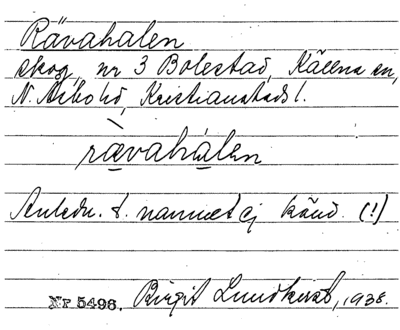 Rävahalen
skog, nr 3 Bolestad, Källna sn,
N. Åsbo hd, Kristianstads l.
rævahàlen
Anledn. t. namnet ej känd. (!)
Nr 5496. Birgit Lundkvist, 1938.